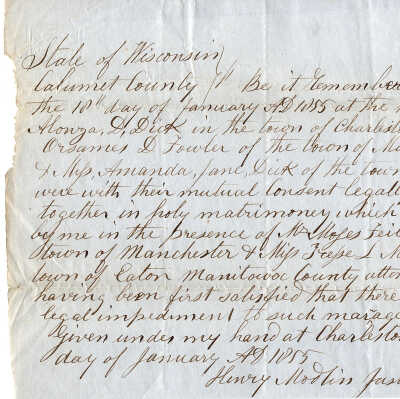 State of Wisconsin
Calumet County } ss Be it Remember
the 18th day of January AD 1855 at the
Alonza, D, Dick in the town of Charlest
Orsames D Fowler of the town of Ma
& Miss, Amanda, Jane, Dick of the town
were with their mutual consent legall
together in holy matrimoney which
by me in the presence of Mr Moses Fai
town of Manchester & Miss L M
town of Eaton Manitowoc County atten
having been first satisfied that there
legal impediment to such marage
Given under my hand at Charlesto
day of January AD 1855
Henry Modlin Jus